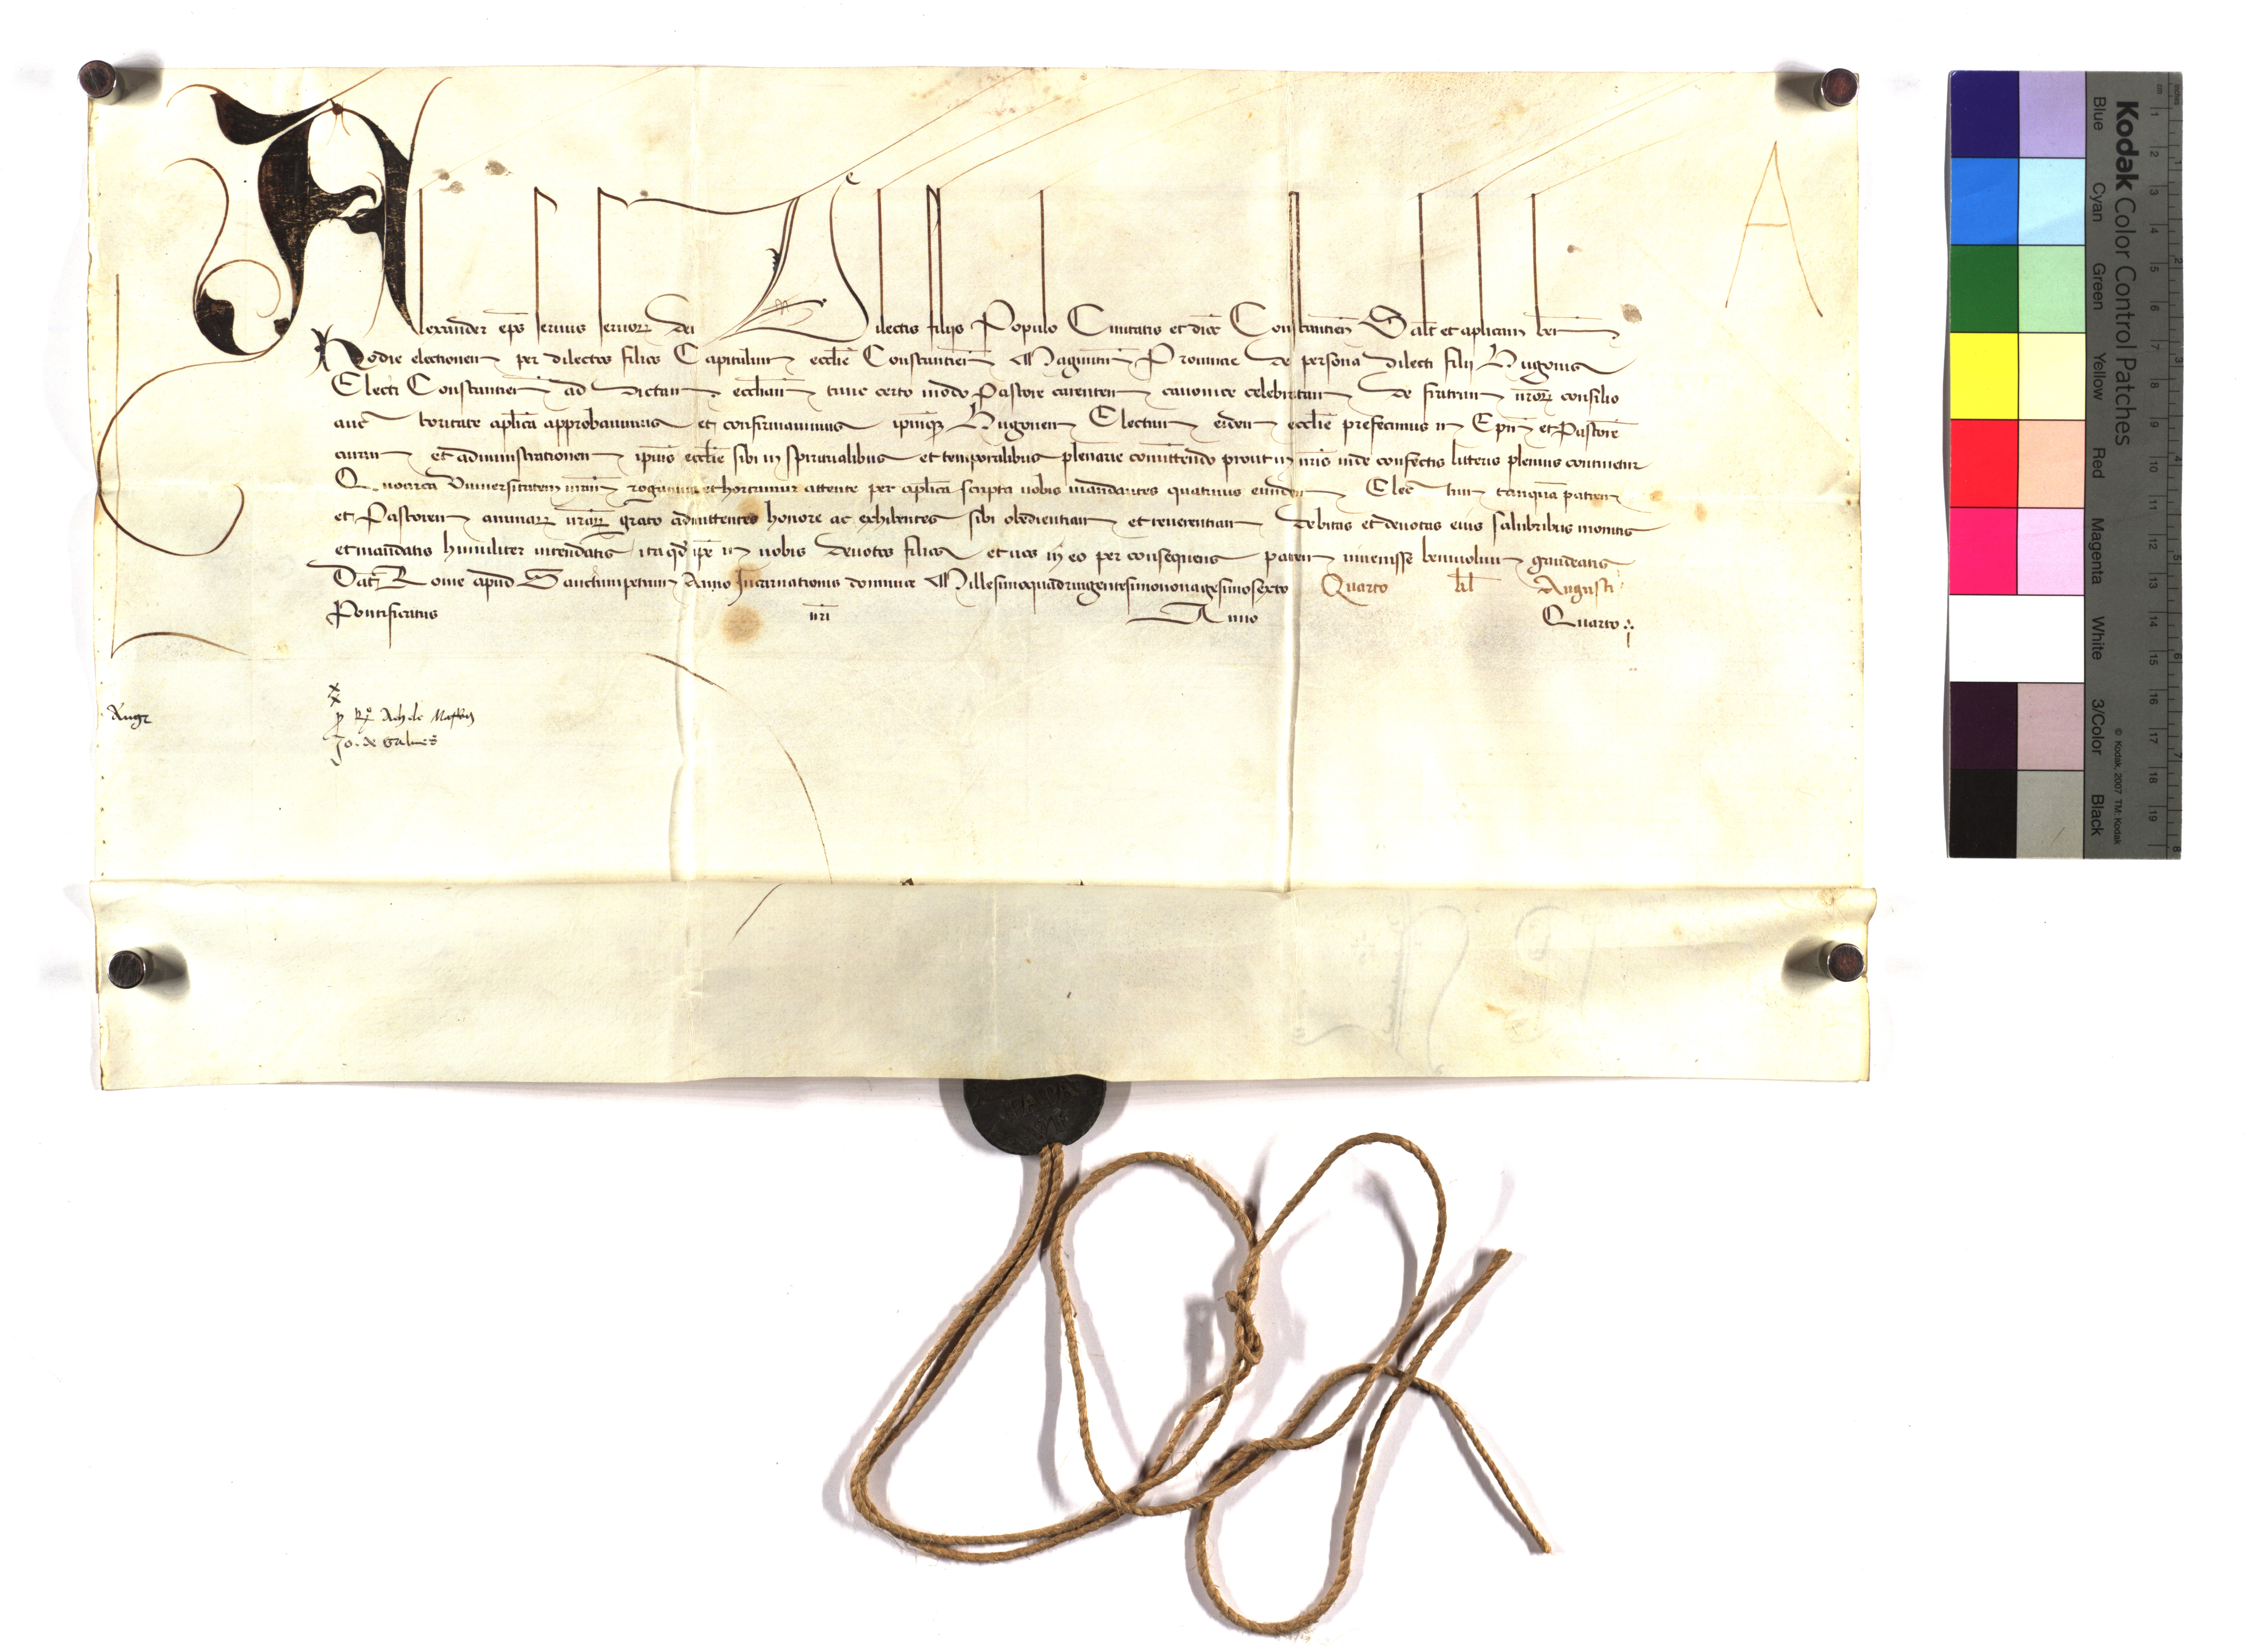 Alexander ep̄s servus servoꝝ dei Dilectis filiis Populo Civitatis et dioc̄ Constantien̄ Salt̄ et aplicam ben̄
Hodie electionem per dilectos filios Capitulum eccl̄ie Constantien̄ Maguntin̄ Provincie de persona dilecti filii Hugonis
Electi Constantien̄ ad dictam eccl̄iam tunc certo modo Pastore carentem canonice celebratam de fratrum nr̄oꝝ consilio
auc toritate apl̄ica approbavimus et confirmavimus ipm̄qꝫ Hugonem Electum eidem eccl̄ie prefecimus in Ep̄m et Pastorē
curam et administrationem ipius eccl̄ie sibi in spiritualibus et temporalibus plenarie comittendo prout in nr̄is inde confectis litteris plenius continetur
Quocirca Universitatem vram̄ rogamus et hortamur attente per apl̄ica scripta vobis mandantes quatinus eundem Elec tum tanquā patrem
et Pastorem animaꝝ vr̄aꝝ grato admittentes honore ac exhibentes sibi obedientiam et reverentiam debitas et devotas eius salubribus monitis
et mandatis humiliter intendatis itaqꝫ ip̄e in vobis devotos filios et vos in eo per consequens patrem invenisse benivolum gaudeatis
Dat̄ Rome apud Sanctumpetrum Anno Incarnationis dominice Millesimoquadringentesimononagesimosexto Quarto kl̄ Augusti
Pontificatus nr̄i Anno Quarto
A
Jo. de Galves
PAPA
VI
Kodak Color Control Patches
Blue Cyan Green Yellow Red Magenta White 3/Color Black
© Kodak, 2007 TM: Kodak
cm 1 2 3 4 5 6 7 8 9 10 11 12 13 14 15 16 17 18 19
inches 1 2 3 4 5 6 7 8